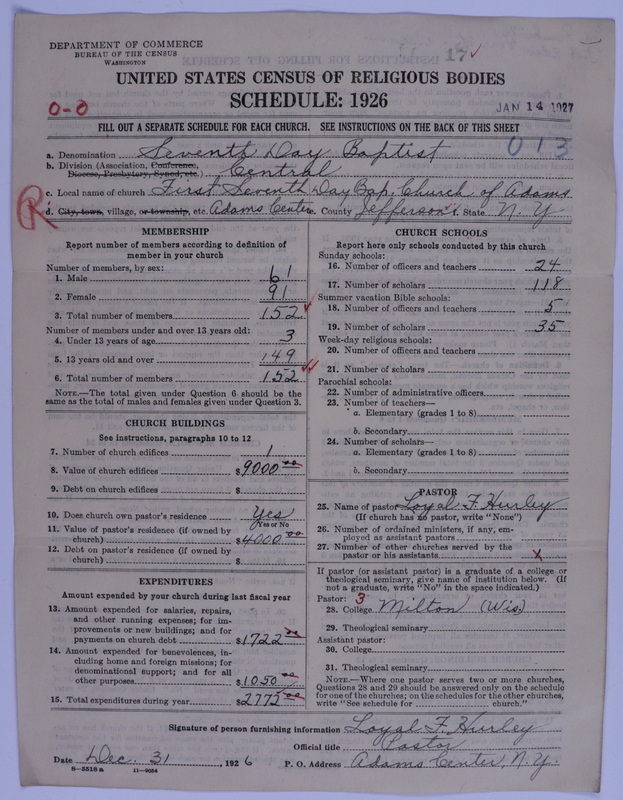 DEPARTMENT OF COMMERCE
BUREAU OF THE CENSUS
WASHINGTON
17
UNITED STATES CENSUS OF RELIGIOUS BODIES
SCHEDULE: 1926
0-0
JAN 14 1927
FILL OUT A SEPARATE SCHEDULE FOR EACH CHURCH. SEE INSTRUCTIONS ON THE BACK OF THIS SHEET
013
a. Denomination Seventh Day Baptist
b. Division (Association, Conference, Diocese, Presbytery, Synod, etc.) Central
c. Local name of church First Seventh Day Bap. Church of Adams
R
d. City, town, village, or township, etc. Adams Center e. County Jefferson f. State N. Y.
MEMBERSHIP
Report number of members according to definition of
member in your church
Number of members, by sex:
1. Male 61
2. Female 91
3. Total number of members 152
Number of members under and over 13 years old:
4. Under 13 years of age 3
5. 13 years old and over 149
6. Total number of members 152
NOTE.—The total given under Question 6 should be
same as the total of males and females given under Question 3.
CHURCH BUILDINGS
See instructions, paragraphs 10 to 12
7. Number of church edifices 1
8. Value of church edifices $9000.00
9. Debt on church edifices $
10. Does church own pastor's residence Yes
Yes or No
11. Value of pastor's residence (if owned by
church) $4000.00
12. Debt on pastor's residence (if owned by
church) $
EXPENDITURES
Amount expended by your church during last fiscal year
13. Amount expended for salaries, repairs,
and other running expenses; for im-
provements or new buildings; and for
payments on church debt $1722.00
14. Amount expended for benevolences, in-
cluding home and foreign missions; for
denominational support; and for all
other purposes $1050.00
15. Total expenditures during year $2775.00
CHURCH SCHOOLS
Report here only schools conducted by this church
Sunday schools:
16. Number of officers and teachers 24
17. Number of scholars 118
Summer vacation Bible schools:
18. Number of officers and teachers 5
19. Number of scholars 35
Week-day religious schools:
20. Number of officers and teachers
21. Number of scholars
Parochial schools:
22. Number of administrative officers
23. Number of teachers—
a. Elementary (grades 1 to 8)
b. Secondary
24. Number of scholars—
a. Elementary (grades 1 to 8)
b. Secondary
PASTOR
25. Name of pastor Loyal F. Hurley
(If church has no pastor, write "None")
26. Number of ordained ministers, if any, em-
ployed as assistant pastors
27. Number of other churches served by the
pastor or his assistants x
If pastor (or assistant pastor) is a graduate of a college or
theological seminary, give name of institution below. (If
not a graduate, write "No" in the space indicated.)
Pastor: 3
28. College Milton (Wis)
29. Theological seminary
Assistant pastor:
30. College
31. Theological seminary
NOTE.—Where one pastor serves two or more churches,
Questions 28 and 29 should be answered only on the schedule
for one of the churches; on the schedules for the other churches,
write "See schedule for church."
Signature of person furnishing information Loyal F. Hurley
Official title Pastor
Date Dec. 31, 1926 P. O. Address Adams Center, N. Y.
8—5518 a 11—9054